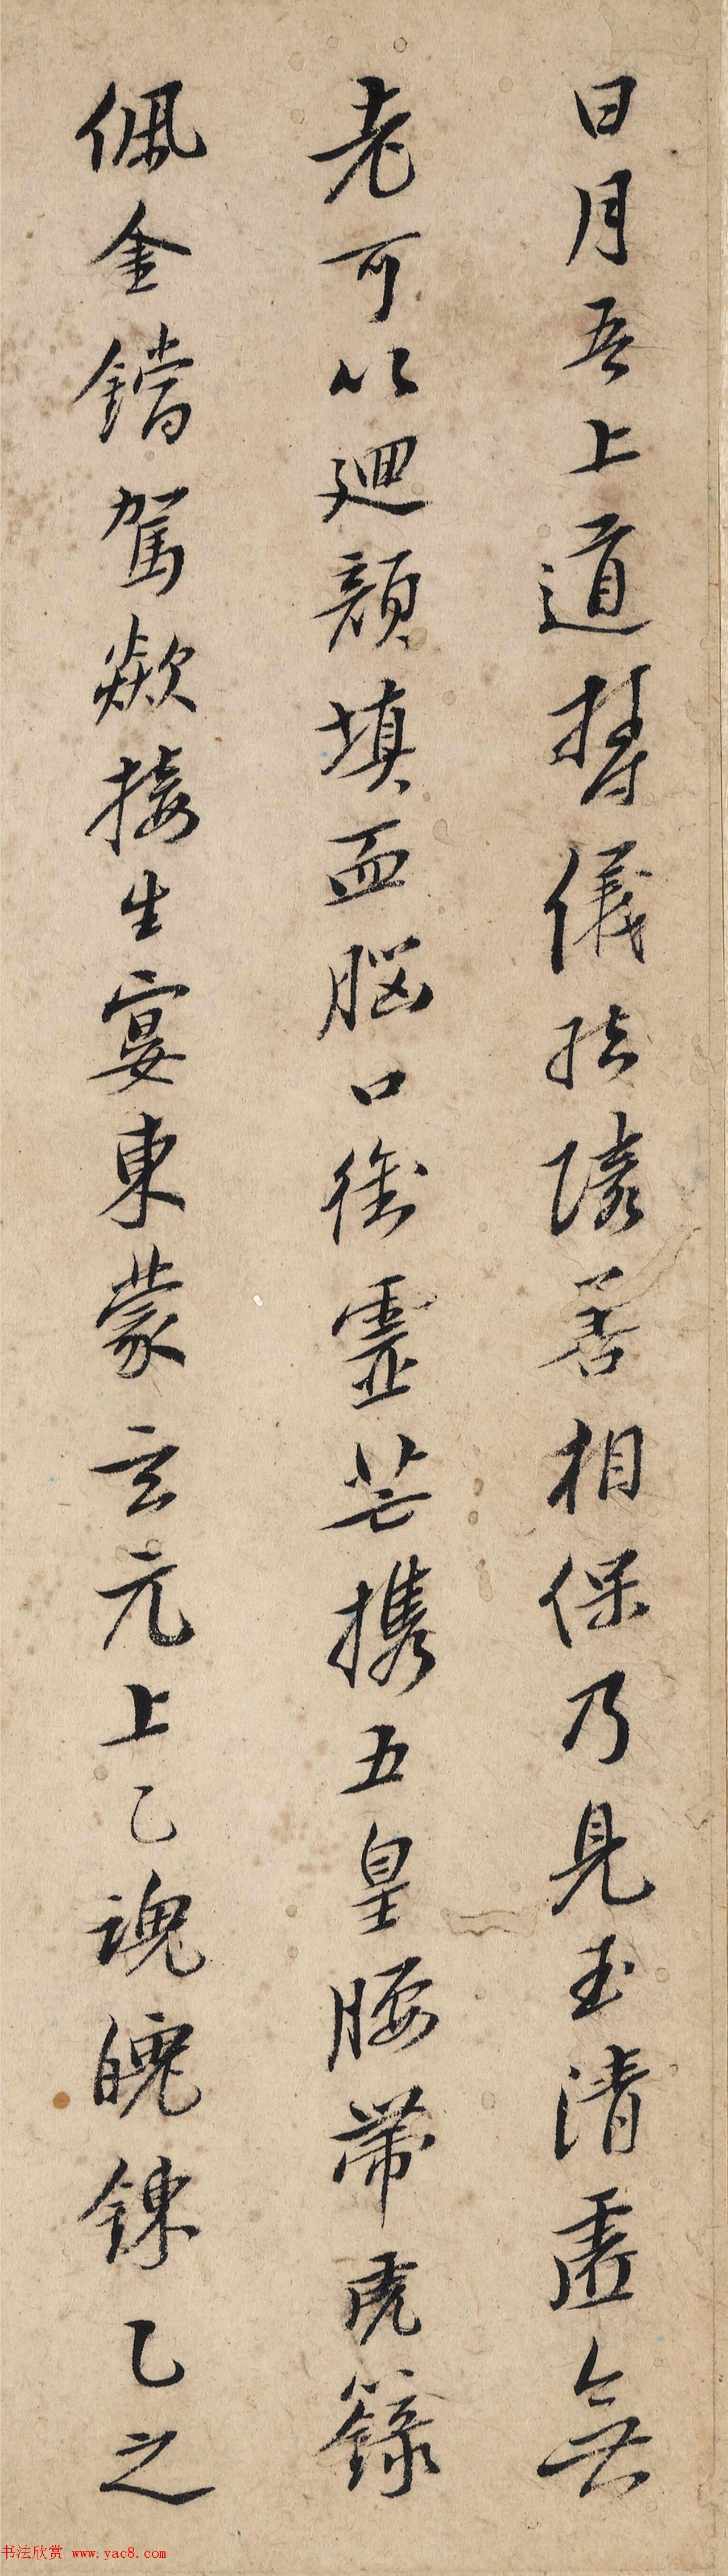 日月吾上道摶儀結璘善相保乃見玉清虛無
老可以迴顏填血腦口銜靈芒攜五皇腰帶虎籙
佩金鐺駕欻接生宴東蒙玄元上乙魂魄鍊乙之
书法欣赏 www.yac8.com